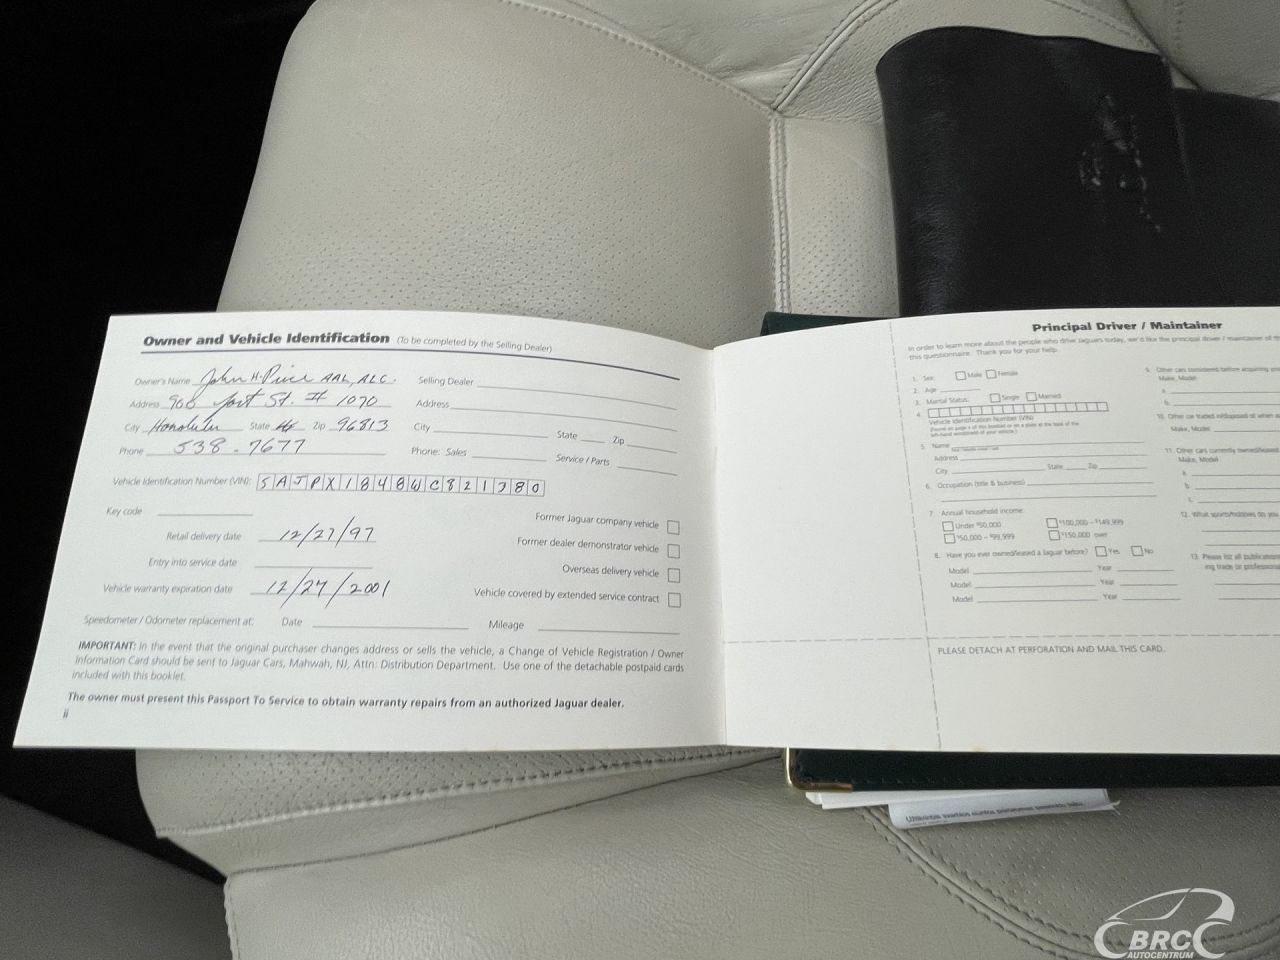 Owner and Vehicle Identification (To be completed by the Selling Dealer)
Owner's Name John H. Price AAL, ALC.
Address 900 Fort St. # 1070
City Honolulu State HI Zip 96813
Phone 538-7677
Selling Dealer
Address
City State Zip
Phone: Sales Service / Parts
Vehicle Identification Number (VIN): SAJPX1848WC821780
Key code
Retail delivery date 12/27/97
Entry into service date
Vehicle warranty expiration date 12/27/2001
Former Jaguar company vehicle
Former dealer demonstrator vehicle
Overseas delivery vehicle
Vehicle covered by extended service contract
Speedometer / Odometer replacement at: Date Mileage
IMPORTANT: In the event that the original purchaser changes address or sells the vehicle, a Change of Vehicle Registration / Owner
Information Card should be sent to Jaguar Cars, Mahwah, NJ, Attn: Distribution Department. Use one of the detachable postpaid cards
included with this booklet.
The owner must present this Passport To Service to obtain warranty repairs from an authorized Jaguar dealer.
ii
Principal Driver / Maintainer
In order to learn more about the people who drive Jaguars today, we'd like the principal driver / maintainer of
this questionnaire. Thank you for your help.
1. Sex: Male Female
2. Age
3. Marital Status: Single Married
4.
Vehicle Identification Number (VIN)
5. Name
Address
City State Zip
6. Occupation (title & business)
7. Annual household income:
Under $50,000 $100,000 - $149,999
$50,000 - $99,999 $150,000 over
8. Have you ever owned/leased a Jaguar before? Yes No
Model Year
Model Year
Model Year
9. Other cars considered before acquiring
Make, Model
a.
b.
10. Other car traded in/disposed of when
Make, Model
11. Other cars currently owned/leased
Make, Model
a.
b.
c.
12. What sports/hobbies do you
13. Please list all publications
ing trade or professional
PLEASE DETACH AT PERFORATION AND MAIL THIS CARD.
BRC
AUTOCENTRUM